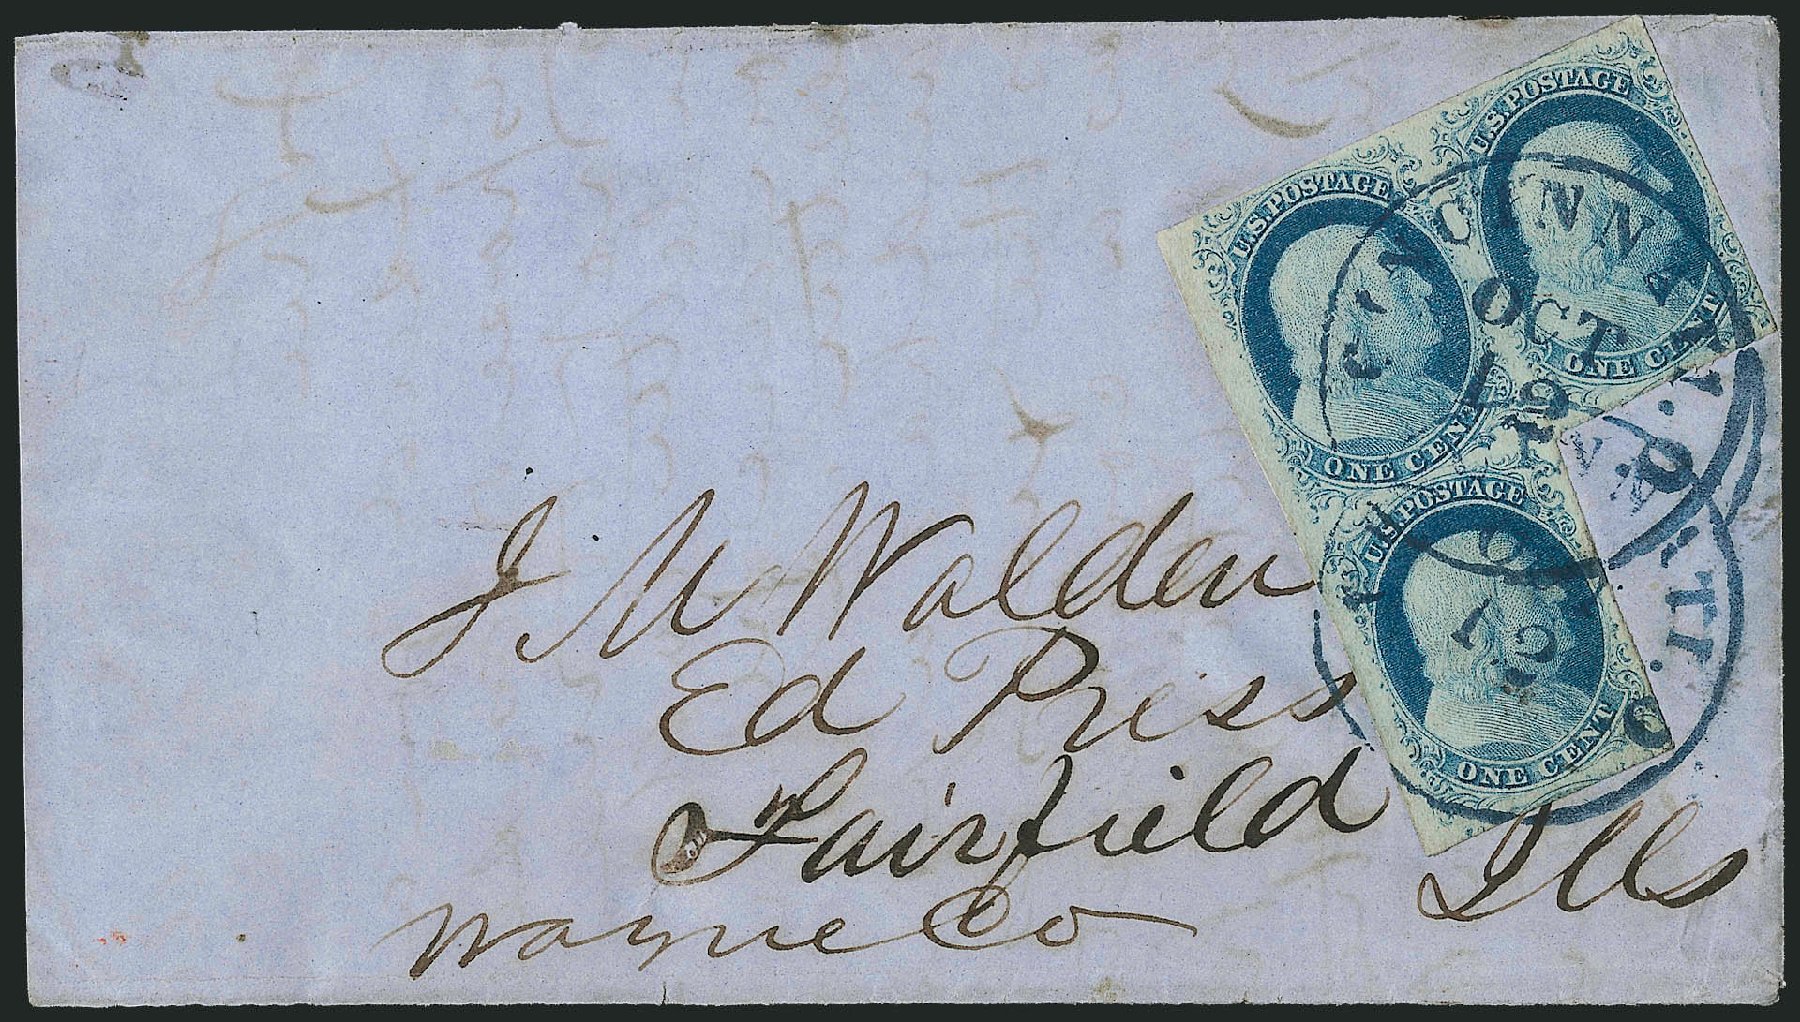 U.S. POSTAGE
ONE CENT
U.S. POSTAGE
ONE CENT
U.S. POSTAGE
ONE CENT
CINCINNATI. O.
OCT
12
12
TI. O
J M Walden
Ed Press
Fairfield
Wayne Co Ills